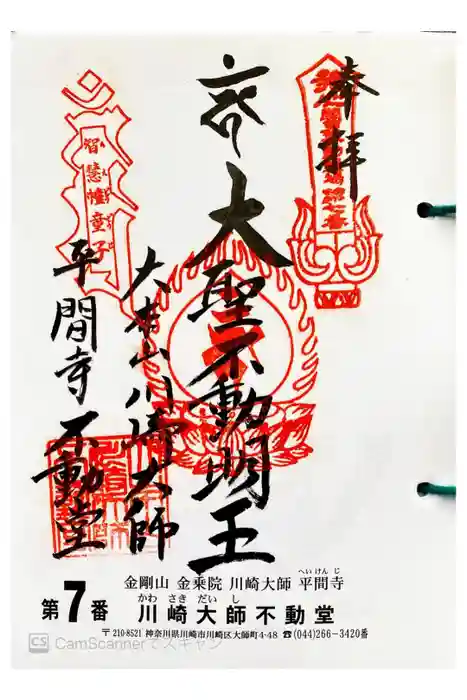 奉拝
大聖不動明王
大本山川崎大師
平間寺 不動堂
智慧幢童子
金剛山 金乗院 川崎大師 平間寺
へいけんじ
第7番
かわさきだいし
川崎大師不動堂
〒210-8521 神奈川県川崎市川崎区大師町4-48 ☎(044)266-3420番
CS CamScannerでスキャン